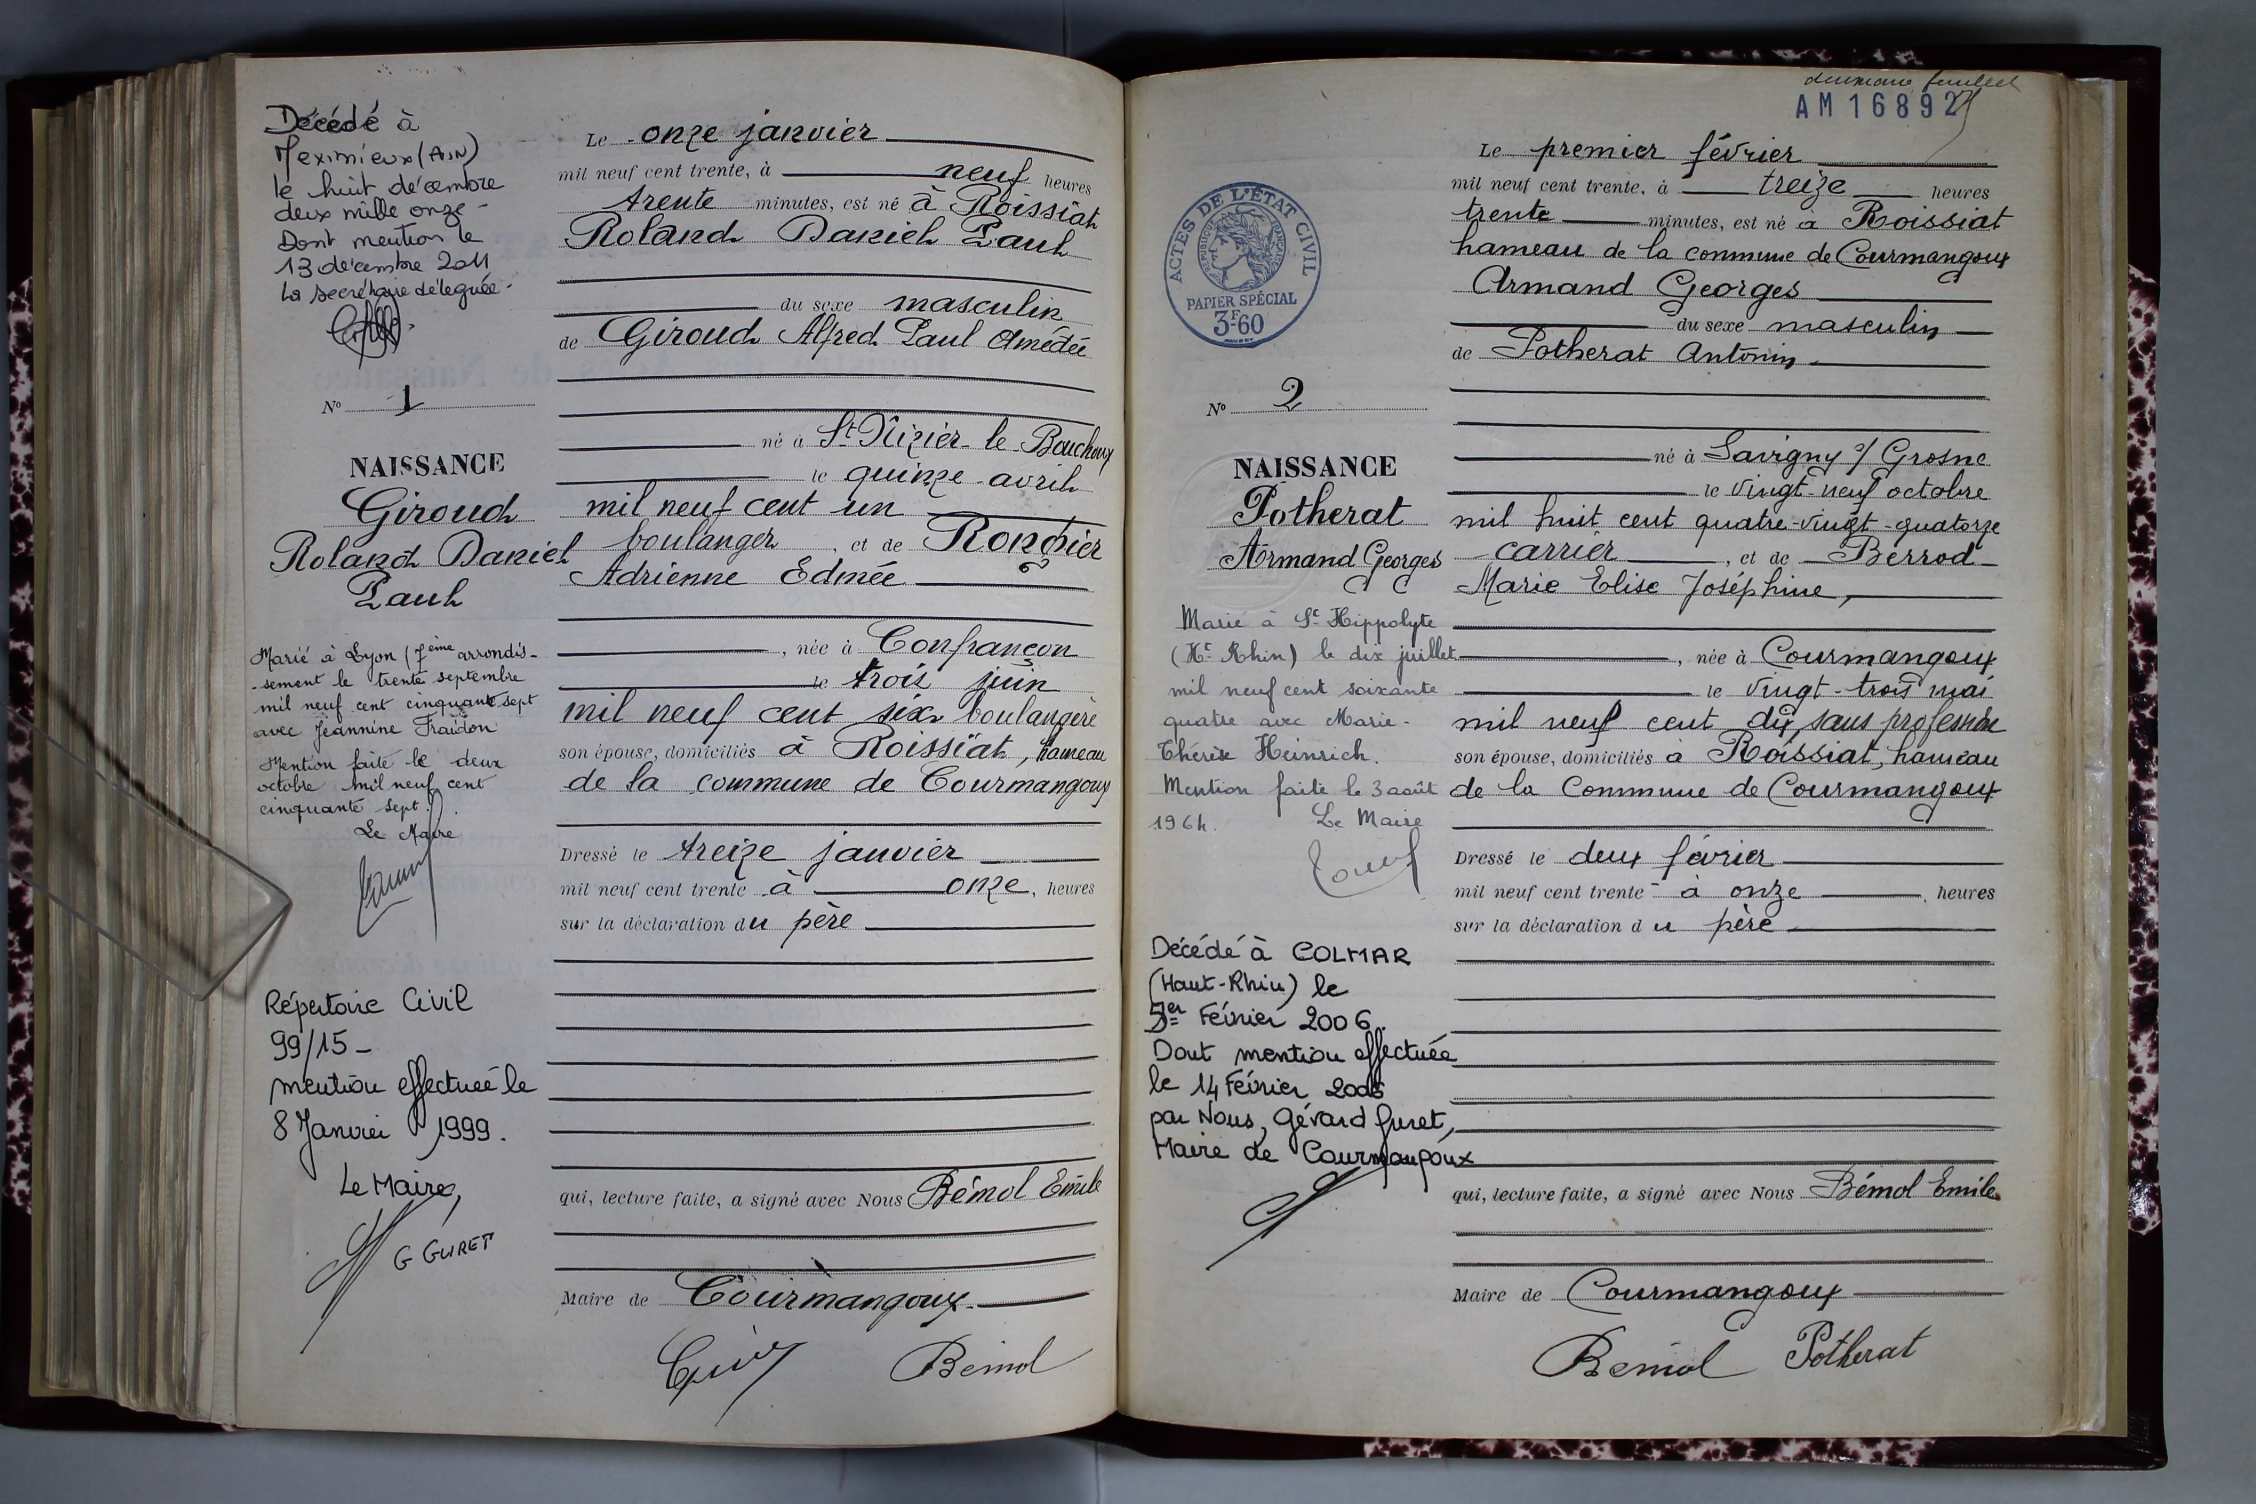 Décédé à
Meximieux (AIN)
le huit décembre
deux mille onze -
Dont mention le
13 décembre 2011
La secrétaire déléguée -
N° 1
NAISSANCE
Giroud
Roland Daniel
Paul
Marié à Lyon (7ème arrondis-
-sement le trente septembre
mil neuf cent cinquante sept
avec Jeannine Fraidon
Mention faite le deux
octobre mil neuf cent
cinquante sept.
Le Maire
Répertoire Civil
99/15 -
mention effectuée le
8 Janvier 1999.
Le Maire,
G GURET
Le onze janvier
mil neuf cent trente, à neuf heures
trente minutes, est né à Roissiat
Roland Daniel Paul
du sexe masculin
de Giroud Alfred Paul Amédée
né à St Nizier-le-Bouchoux
le quinze avril
mil neuf cent un
boulanger, et de Rongier
Adrienne Edmée
, née à Confrançon
le trois juin
mil neuf cent six boulangère
son épouse, domiciliés à Roissiat, hameau
de la commune de Courmangoux
Dressé le treize janvier
mil neuf cent trente à onze, heures
sur la déclaration du père
qui, lecture faite, a signé avec Nous Bémol Emile
Maire de Courmangoux.
Bémol
AM 16892
ACTES DE L'ÉTAT CIVIL
RÉPUBLIQUE FRANÇAISE
PAPIER SPÉCIAL
3F60
N° 2
NAISSANCE
Potherat
Armand Georges
Marié à St Hippolyte
(Ht Rhin) le dix juillet
mil neuf cent soixante
quatre avec Marie-
Thérèse Heinrich.
Mention faite le 3 août
1964. Le Maire
Décédé à COLMAR
(Haut-Rhin) le
Février 2006.
Dont mention effectuée
le 14 Février 2006
par Nous, Gérard Guret,
Maire de Courmangoux
Le premier février
mil neuf cent trente, à treize heures
trente minutes, est né à Roissiat
hameau de la commune de Courmangoux
Armand Georges
du sexe masculin
de Potherat Antonin
né à Savigny s/ Grosne
le vingt-neuf octobre
mil huit cent quatre-vingt-quatorze
carrier, et de Berrod
Marie Elise Joséphine,
, née à Courmangoux
le vingt-trois mai
mil neuf cent dix, sans profession
son épouse, domiciliés à Roissiat, hameau
de la Commune de Courmangoux
Dressé le deux février
mil neuf cent trente à onze, heures
sur la déclaration du père
qui, lecture faite, a signé avec Nous Bémol Emile
Maire de Courmangoux
Bémol Potherat